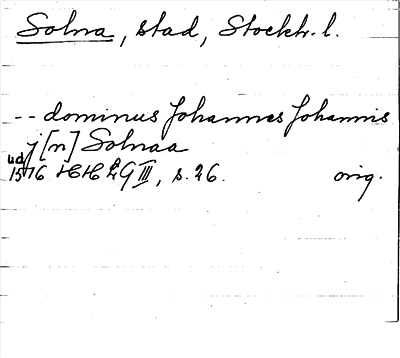 Solna, stad, Stockh. l.
-- dominus Johannes Johannis
j [n] Solnaa
ud
1576 HH 2G III, s. 26. orig.